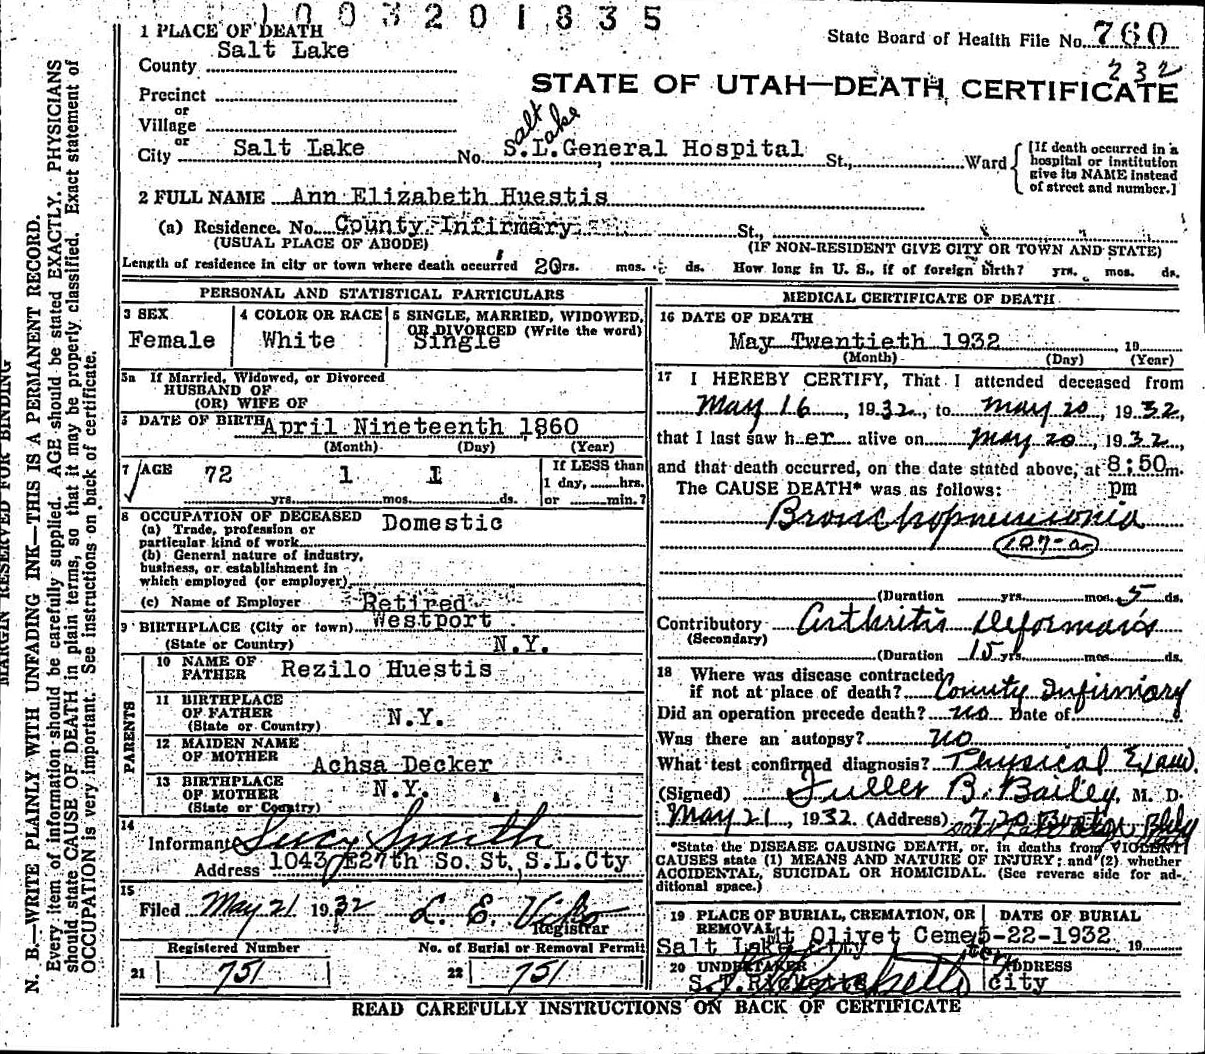 1003201835
State Board of Health File No. 760
232
STATE OF UTAH—DEATH CERTIFICATE
1 PLACE OF DEATH
County Salt Lake
Precinct
or
Village
or
City Salt Lake No. S.L. General Hospital St., Ward
Salt Lake
[If death occurred in a hospital or institution give its NAME instead of street and number.]
2 FULL NAME Ann Elizabeth Huestis
(a) Residence. No. County Infirmary St.,
(USUAL PLACE OF ABODE) (IF NON-RESIDENT GIVE CITY OR TOWN AND STATE)
Length of residence in city or town where death occurred 20 yrs. mos. ds. How long in U. S., if of foreign birth? yrs. mos. ds.
PERSONAL AND STATISTICAL PARTICULARS
3 SEX
Female
4 COLOR OR RACE
White
5 SINGLE, MARRIED, WIDOWED, OR DIVORCED (Write the word)
Single
5a If Married, Widowed, or Divorced
HUSBAND OF
(OR) WIFE OF
DATE OF BIRTH April Nineteenth 1860
(Month) (Day) (Year)
7 AGE 72 1 1
yrs. mos. ds.
If LESS than
1 day, hrs.
or min.?
8 OCCUPATION OF DECEASED Domestic
(a) Trade, profession or
particular kind of work
(b) General nature of industry,
business, or establishment in
which employed (or employer)
(c) Name of Employer Retired
9 BIRTHPLACE (City or town) Westport
(State or Country) N.Y.
PARENTS
10 NAME OF FATHER Rezilo Huestis
11 BIRTHPLACE OF FATHER (State or Country) N.Y.
12 MAIDEN NAME OF MOTHER Achsa Decker
13 BIRTHPLACE OF MOTHER (State or Country) N.Y.
14
Informant Lucy Smith
Address 1043 E 27th So. St, S.L.Cty
15
Filed May 21 1932 L. E. Viko
Registrar
Registered Number No. of Burial or Removal Permit
21 751 22 751
MEDICAL CERTIFICATE OF DEATH
16 DATE OF DEATH
May Twentieth 1932, 19
(Month) (Day) (Year)
17 I HEREBY CERTIFY, That I attended deceased from
May 16, 1932, to May 20, 1932,
that I last saw her alive on May 20, 1932,
and that death occurred, on the date stated above, at 8:50 m.
The CAUSE DEATH* was as follows: pm
Bronchopneumonia
107-a
(Duration yrs. mos. 5 ds.
Contributory Arthritis Deformans
(Secondary)
(Duration 15 yrs. mos. ds.
18 Where was disease contracted
if not at place of death? County Infirmiary
Did an operation precede death? no Date of
Was there an autopsy? no
What test confirmed diagnosis? Physical Exam.
(Signed) Fuller B. Bailey, M. D.
May 21, 1932 (Address) 720 Bldg
*State the DISEASE CAUSING DEATH, or, in deaths from VIOLENT
CAUSES state (1) MEANS AND NATURE OF INJURY; and (2) whether
ACCIDENTAL, SUICIDAL OR HOMICIDAL. (See reverse side for additional space.)
19 PLACE OF BURIAL, CREMATION, OR REMOVAL DATE OF BURIAL
Mt Olivet Cemetery 5-22-1932 19
Salt Lake City
20 UNDERTAKER ADDRESS
S.T. Ricketts city
READ CAREFULLY INSTRUCTIONS ON BACK OF CERTIFICATE
MARGIN RESERVED FOR BINDING
N. B.—WRITE PLAINLY WITH UNFADING INK—THIS IS A PERMANENT RECORD.
Every item of information should be carefully supplied. AGE should be stated EXACTLY. PHYSICIANS
should state CAUSE OF DEATH in plain terms, so that it may be properly classified. Exact statement of
OCCUPATION is very important. See instructions on back of certificate.